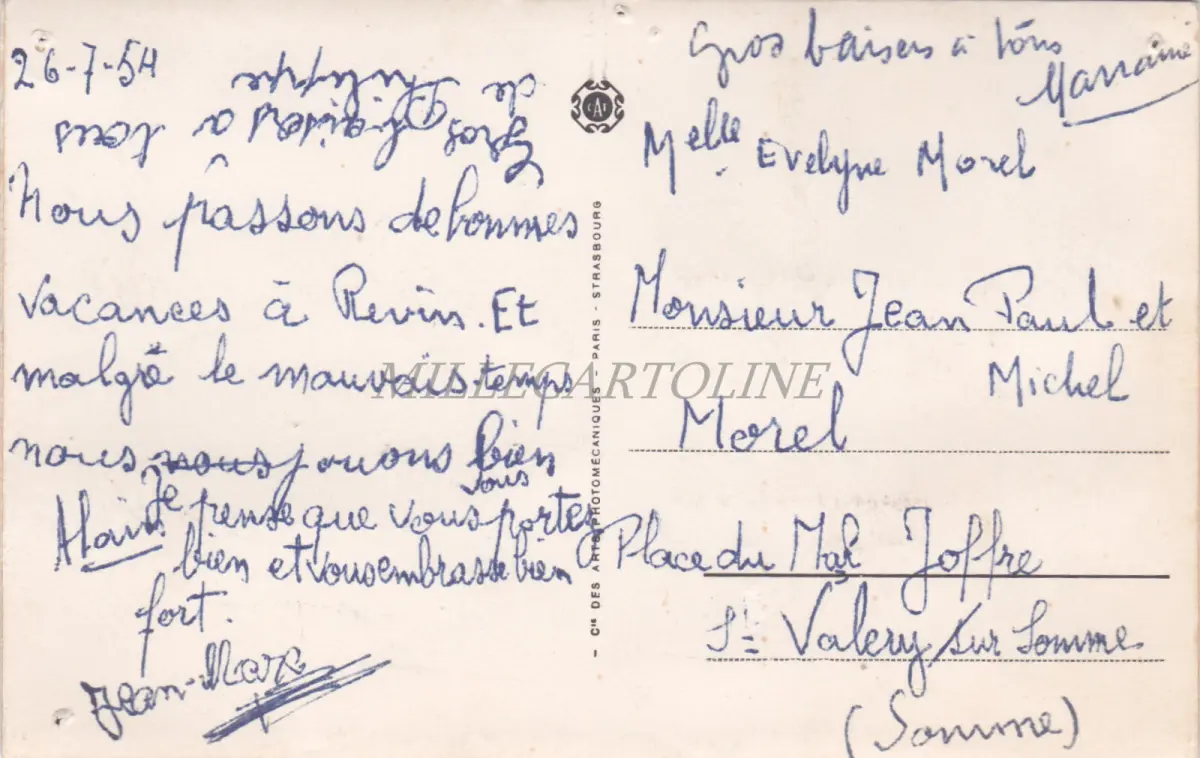 26-7-54
Gros baisers à tous
de Philippe
Nous passons de bonnes
vacances à Revin. Et
malgré le mauvais temps
nous nous jouons bien
Alain.
Je pense que vous vous portez
bien et vous embrasse bien
fort.
Jean-Marc
CAP
- Cie DES ARTS PHOTOMÉCANIQUES - PARIS - STRASBOURG
Gros baisers à tous
Marraine
Melle Evelyne Morel
Monsieur Jean Paul et
Michel
Morel
Place du Mal Joffre
St Valery sur Somme
(Somme)
MILLECARTOLINE